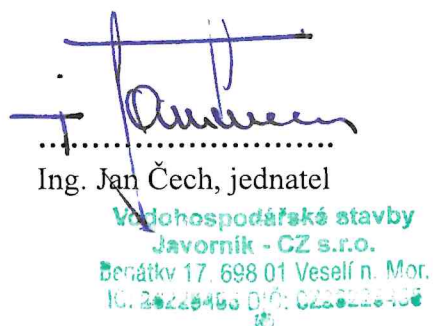 Ing. Jan Čech, jednatel
Vodohospodářské stavby
Javorník - CZ s.r.o.
Benátky 17, 698 01 Veselí n. Mor.